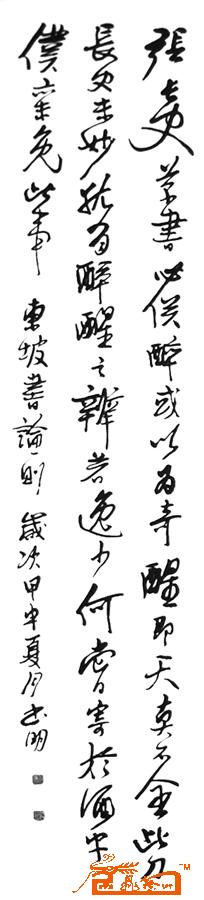 張長史草書必俟醉或以為奇醒即天真不全此乃
長史未妙猶有醉醒之辨若逸少何嘗寄於酒乎
僕亦未免此事 東坡書論一則 歲次甲申夏月